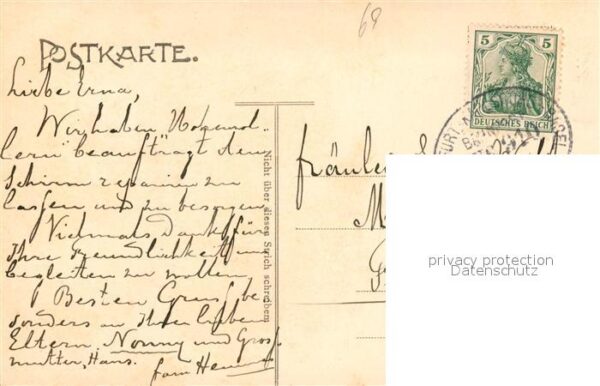 68
POSTKARTE.
5 5
DEUTSCHES REICH
Liebe Erna,
Wir haben "Hohenzol-
lern" beauftragt den
Schirm reparieren zu
lassen und zu besorgen
Vielmals Dank für
Ihre Freundlichkeit uns
begleiten zu wollen
Besten Gruss be
sonders an Ihren lieben
Eltern. Nonny und Gross
mutter, Hans.
Nicht über diesen Strich schreiben
Fräulein
privacy protection
Datenschutz